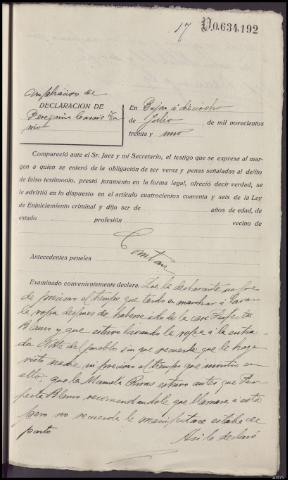 17 Vo.634.192
Ampliacion de
DECLARACION DE
Peregrina
En Bejar á dieciocho
de Julio de mil novecientos
treinta y uno
Compareció ante el Sr. Juez y mi Secretario, el testigo que se expresa al mar-
gen a quien se enteró de la obligación de ser veraz y penas señaladas al delito
de falso testimonio, prestó juramento en la forma legal, ofreció decir verdad, se
le advirtió en lo dispuesto en el artículo cuatrocientos cuarenta y seis de la Ley
de Enjuiciamiento criminal y dijo ser de años de edad, de
estado profesión vecino de
Constan
Antecedentes penales
Examinado convenientemente declara: Que la declarante no pue-
de precisar el tiempo que tardó en marchar a lavar
la ropa despues de haberse ido de la casa
Blanco y que estuvo lavando la ropa a la entra-
da del pueblo sin que recuerde que la haya
visto nadie, ni precisar el tiempo que invirtió en
ello; que la Manuela estuvo antes que
Blanco, recomendandole que llamara a
pero no recuerda le manifestara estaba de
parto
Asi lo declaró